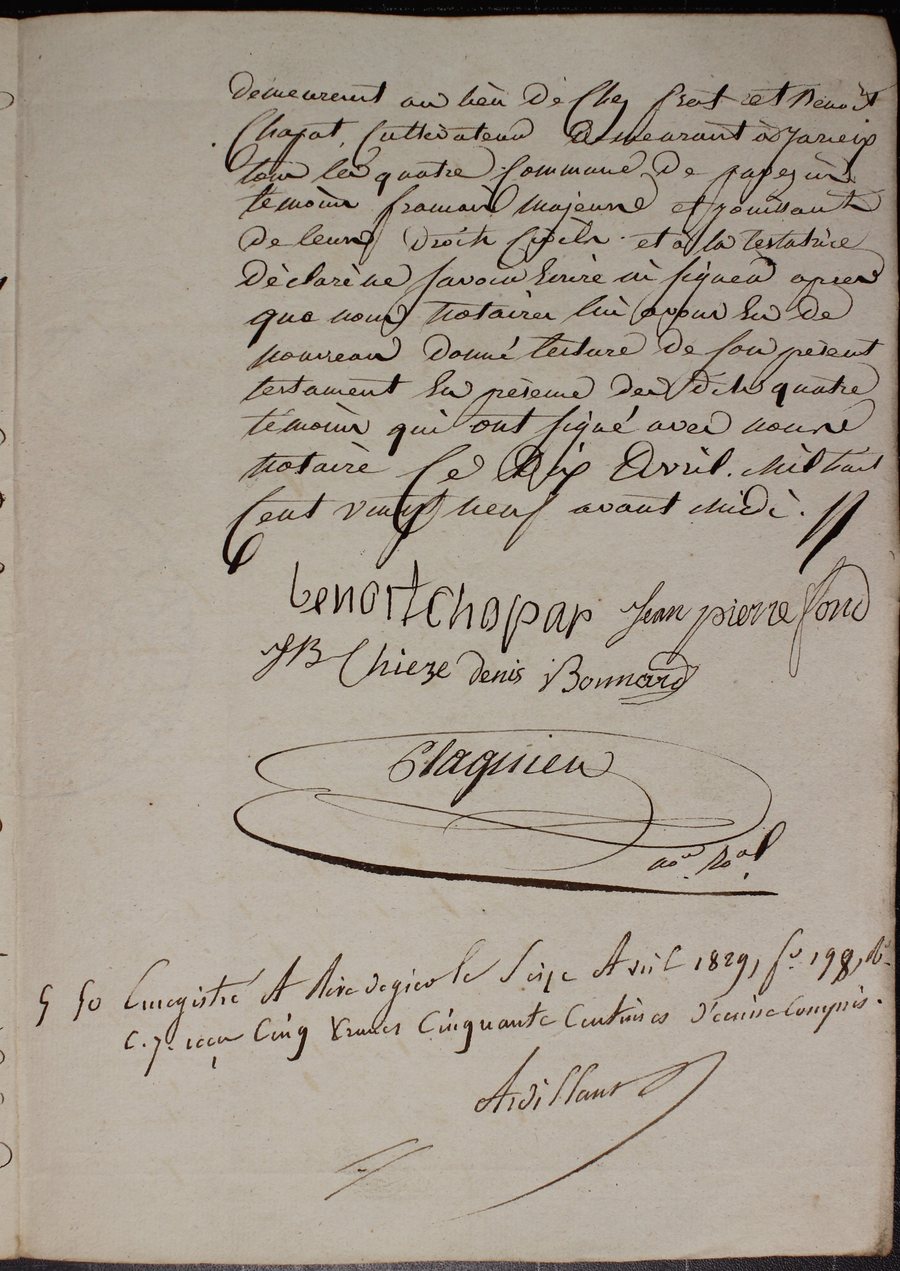 demeurent au lieu de Chez et Benoit
Chapat, Cultivateur demeurant à
tous les quatre Commune de pavezin
temoins francais majeurs et jouissants
de leurs droits Civils. et a la testatrice
déclaré ne savoir Ecrire ni signer apres
que nous Notaires lui avons Eu de
nouveau donné lecture de son présent
testament En présence des dits quatre
témoins qui ont signé avec nous
Notaire Ce Dix Avril. Mil huit
Cent vingt neuf avant midi.
benoit chapap Jean pierre fond
JB Chieze denis Bonnard
Plagnieu
no.re Ro.al
5 50 Enregistré A Rive de gier le Seize Avril 1829, fo. 198, Ro.
C. 7. recu Cinq francs Cinquante Centimes Décime Compris.
Ardillant